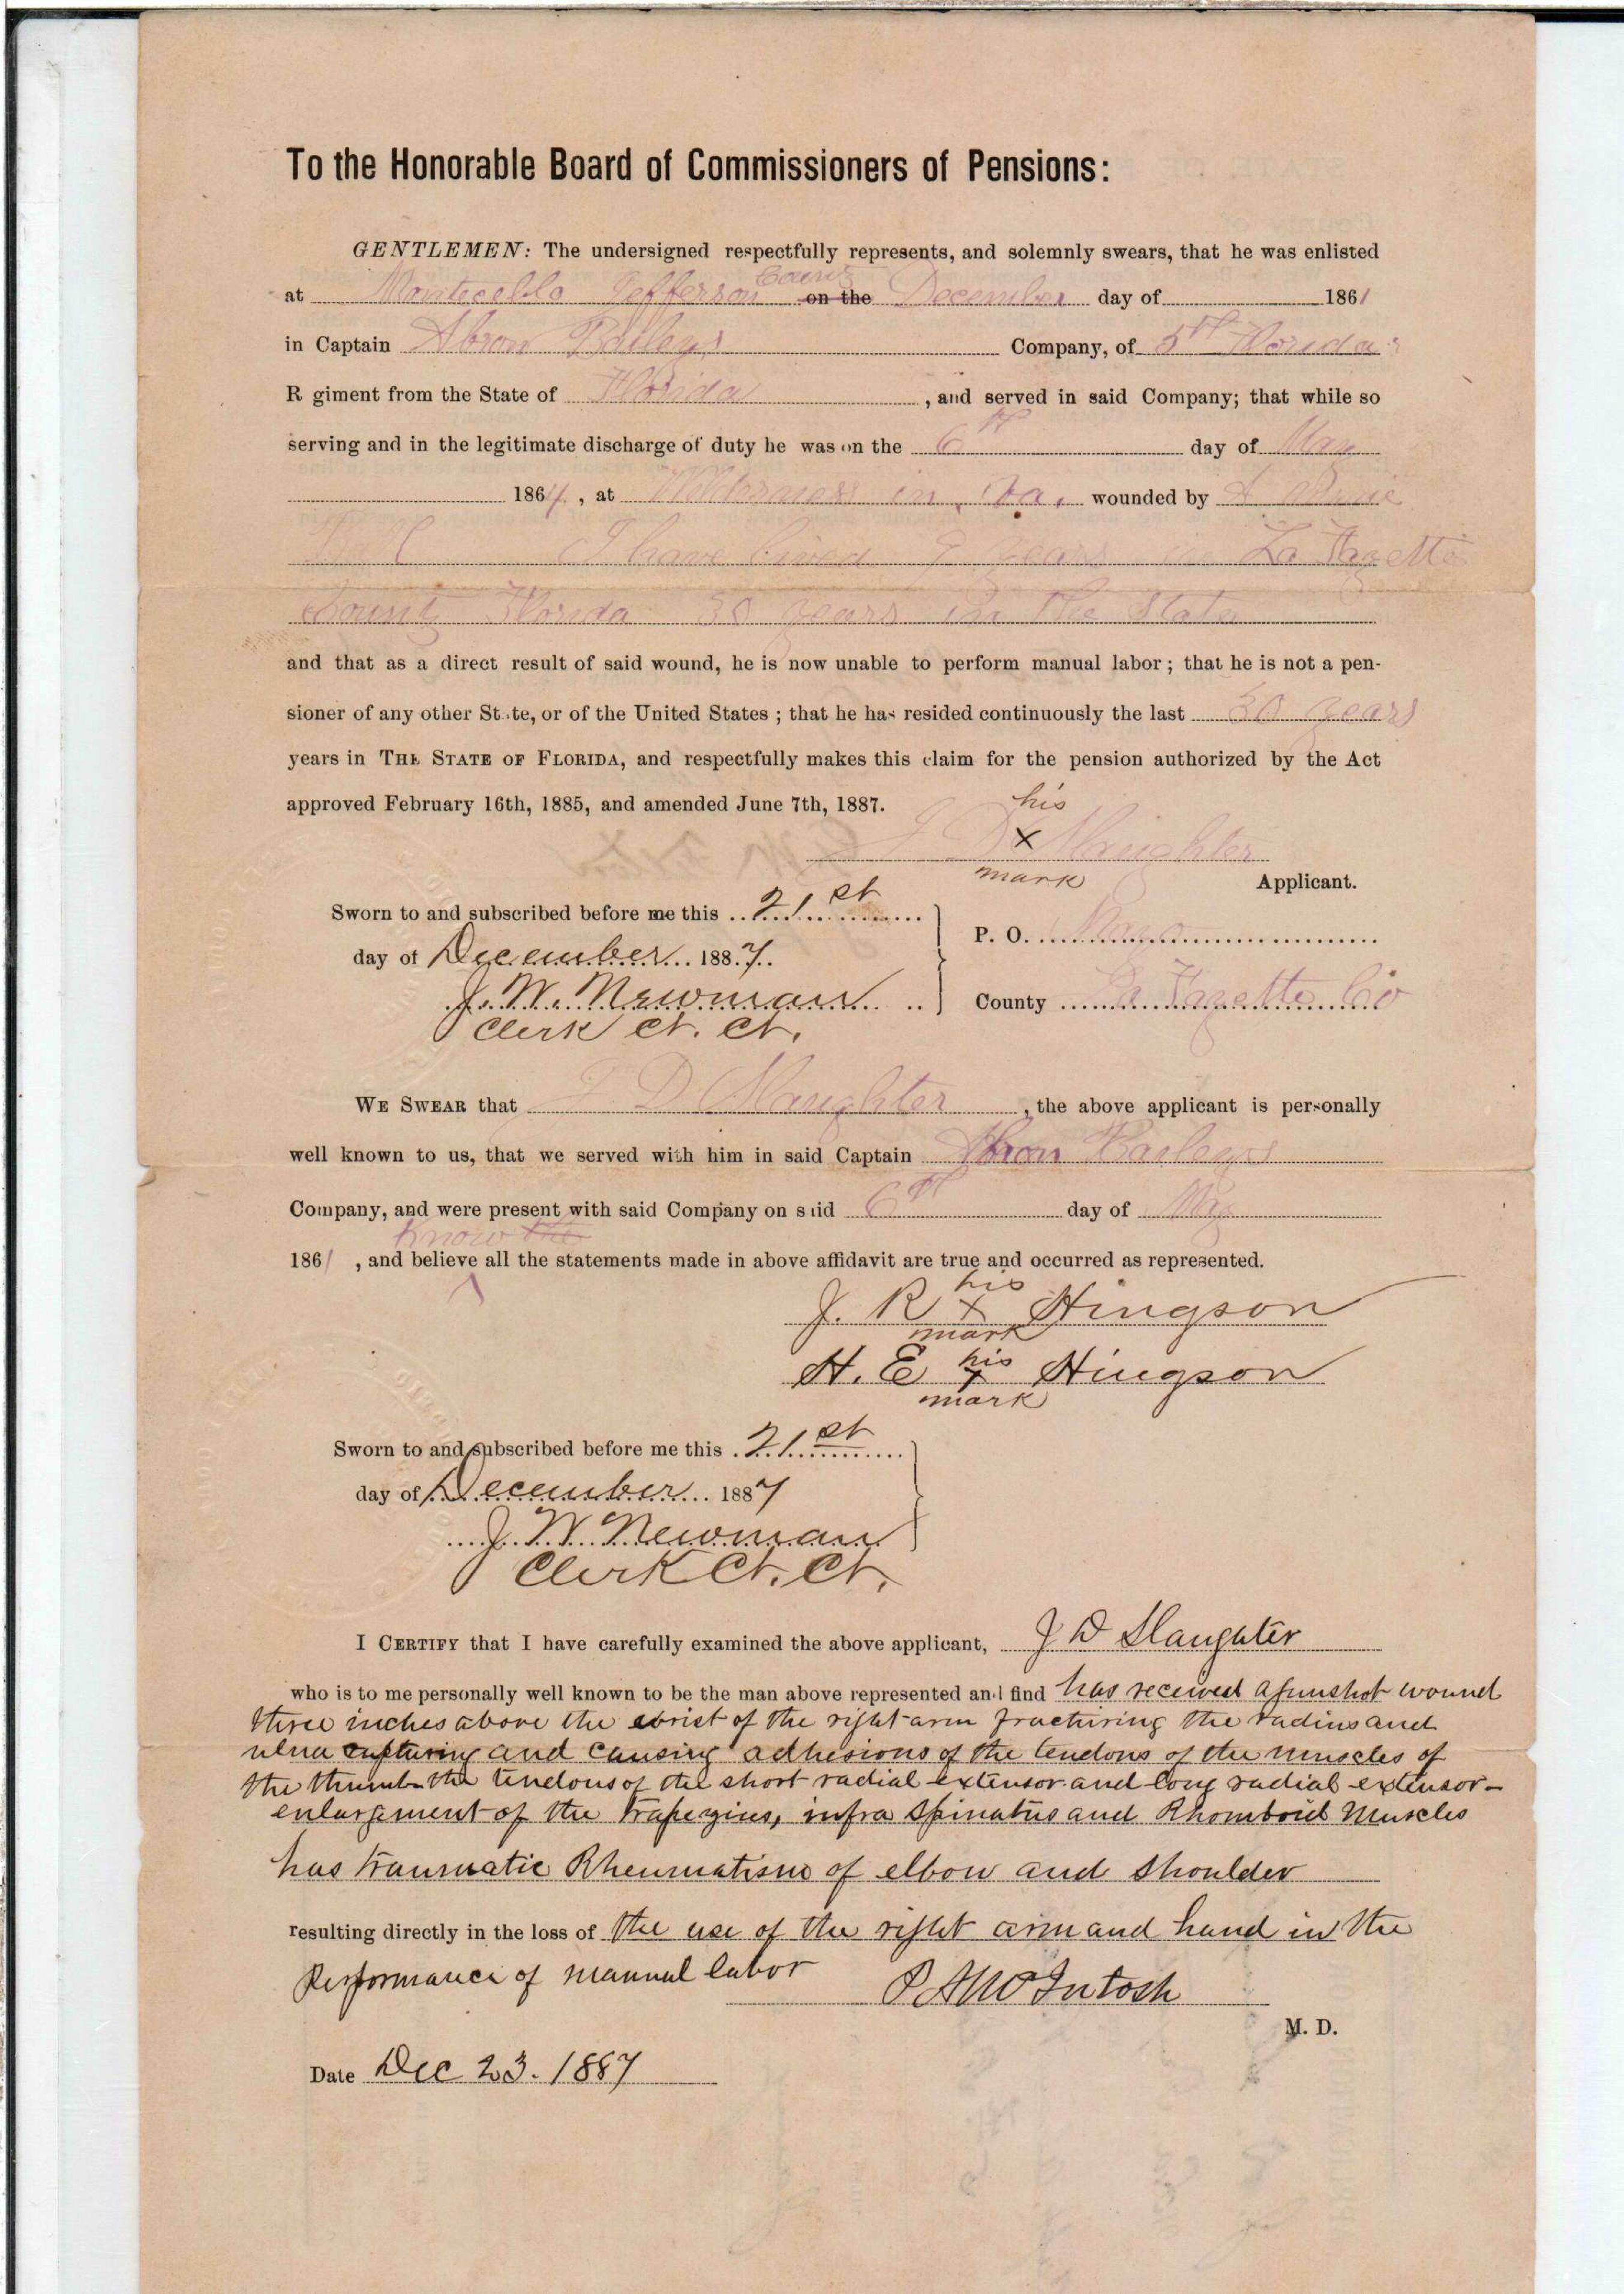 To the Honorable Board of Commissioners of Pensions:
GENTLEMEN: The undersigned respectfully represents, and solemnly swears, that he was enlisted
County
at Monticello Jefferson on the December day of 1861
in Captain Abron Baileys Company, of 5th Florida
R giment from the State of Florida , and served in said Company; that while so
serving and in the legitimate discharge of duty he was on the 6th day of May
1864 , at Wilderness in Va. wounded by A Minie
Ball I have lived 9 years in La Fayette
County Florida 30 years in the State
and that as a direct result of said wound, he is now unable to perform manual labor; that he is not a pen-
sioner of any other St te, or of the United States ; that he has resided continuously the last 30 years
years in THE STATE OF FLORIDA, and respectfully makes this claim for the pension authorized by the Act
approved February 16th, 1885, and amended June 7th, 1887.
his
J D x Slaughter
mark
Applicant.
Sworn to and subscribed before me this 21st
P. O. Mayo
day of December 1887.
J. W. Newman
County La Fayette Co
Clerk Ct. Ct.
WE SWEAR that J D Slaughter , the above applicant is personally
well known to us, that we served with him in said Captain Abron Baileys
Company, and were present with said Company on s id 6th day of May
know the
186 , and believe all the statements made in above affidavit are true and occurred as represented.
his
J. R x Hingson
mark
his
H. E x Hingson
mark
Sworn to and subscribed before me this 21st
day of December 1887
J. W. Newman
Clerk Ct. Ct.
I CERTIFY that I have carefully examined the above applicant, J D Slaughter
who is to me personally well known to be the man above represented and find has received a gunshot wound
three inches above the wrist of the right arm fracturing the radius and
ulna rupturing and causing adhesions of the tendons of the muscles of
the thumb the tendons of the short radial extensor and long radial extensor-
enlargement of the Trapezius, infra Spinatus and Rhomboid Muscles
has traumatic Rheumatism of elbow and shoulder
resulting directly in the loss of the use of the right arm and hand in the
Performance of manual labor
P A McIntosh
M. D.
Date Dec 23. 1887